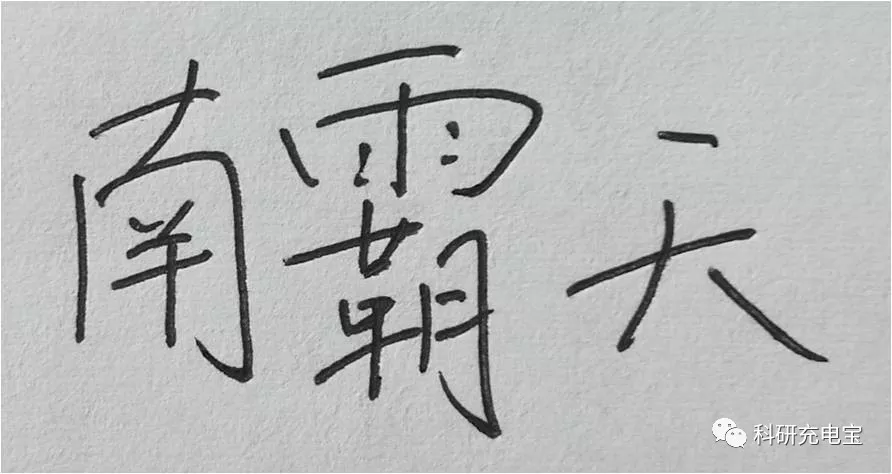 南霸天
科研充电宝